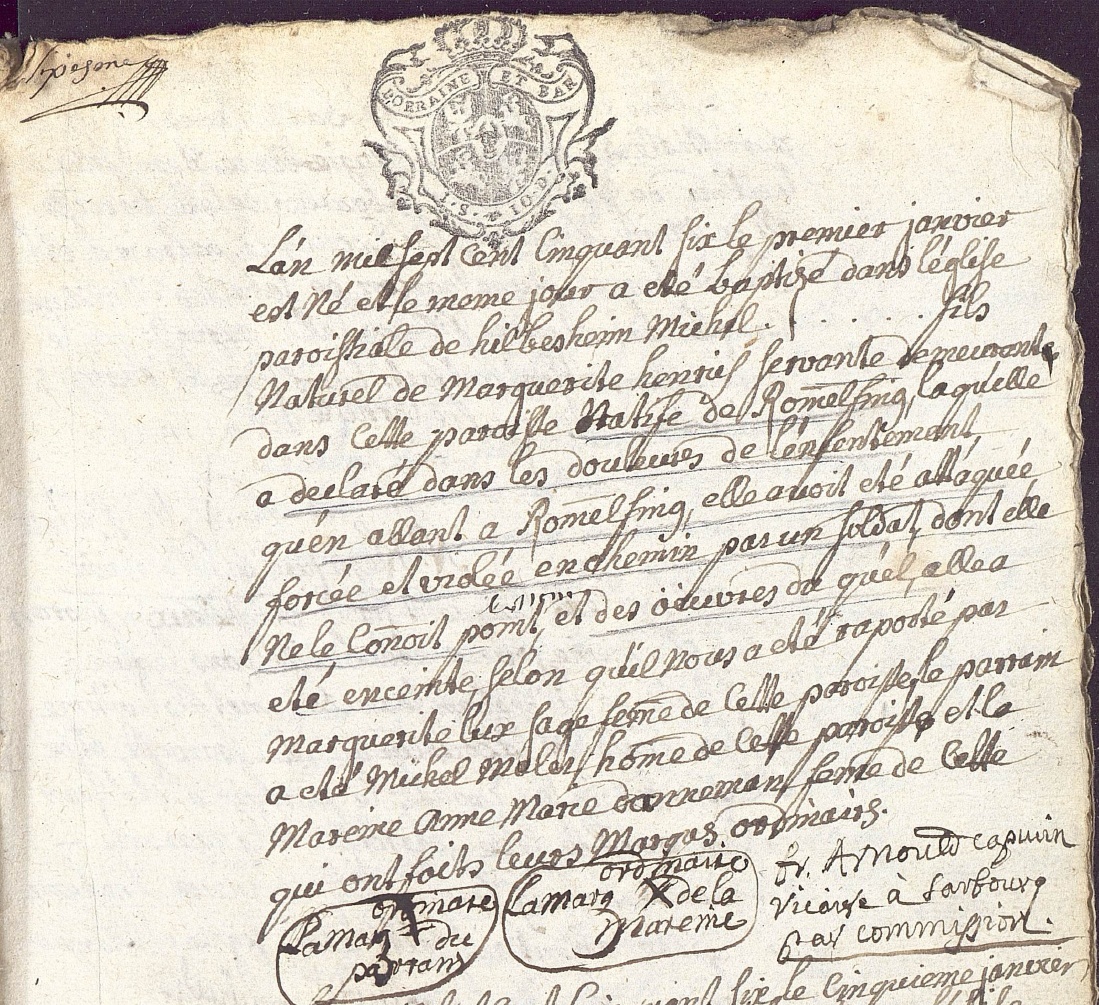 LORRAINE ET BAR
I. S. 10. D.
L'an mil sept cent cinquant six le premier janvier
est Né et le meme jour a eté baptizé dans léglise
paroissiale de hilbesheim Michel . . . . . . fils
Naturel de Marguerite henris servante demeurante
dans cette paroisse Natife de Romelfing, laquelle
a declaré dans les douleures de lenfentement,
quén allant a Romelfing, elle avoit eté attaquée,
forcée et violée en chemin par un soldat, dont elle
Ne le Conoit point, et des oeuvres du quél, elle a
eté enceinte, selon qu'il Nous a eté raporté par
Marguerite lux sage feme de cette paroisse, le parrain
a eté Michel home de cette paroisse et la
Mareine Anne Marie feme de cette
qui ont faits leurs Marques ordinairs.
ordinaire
La marq X de la
Mareine
ordinare
La marq du
parrain
fr. Arnould capucin
vicaire à Sarbourg
par commission.
cinquant six le cinquieme janvier